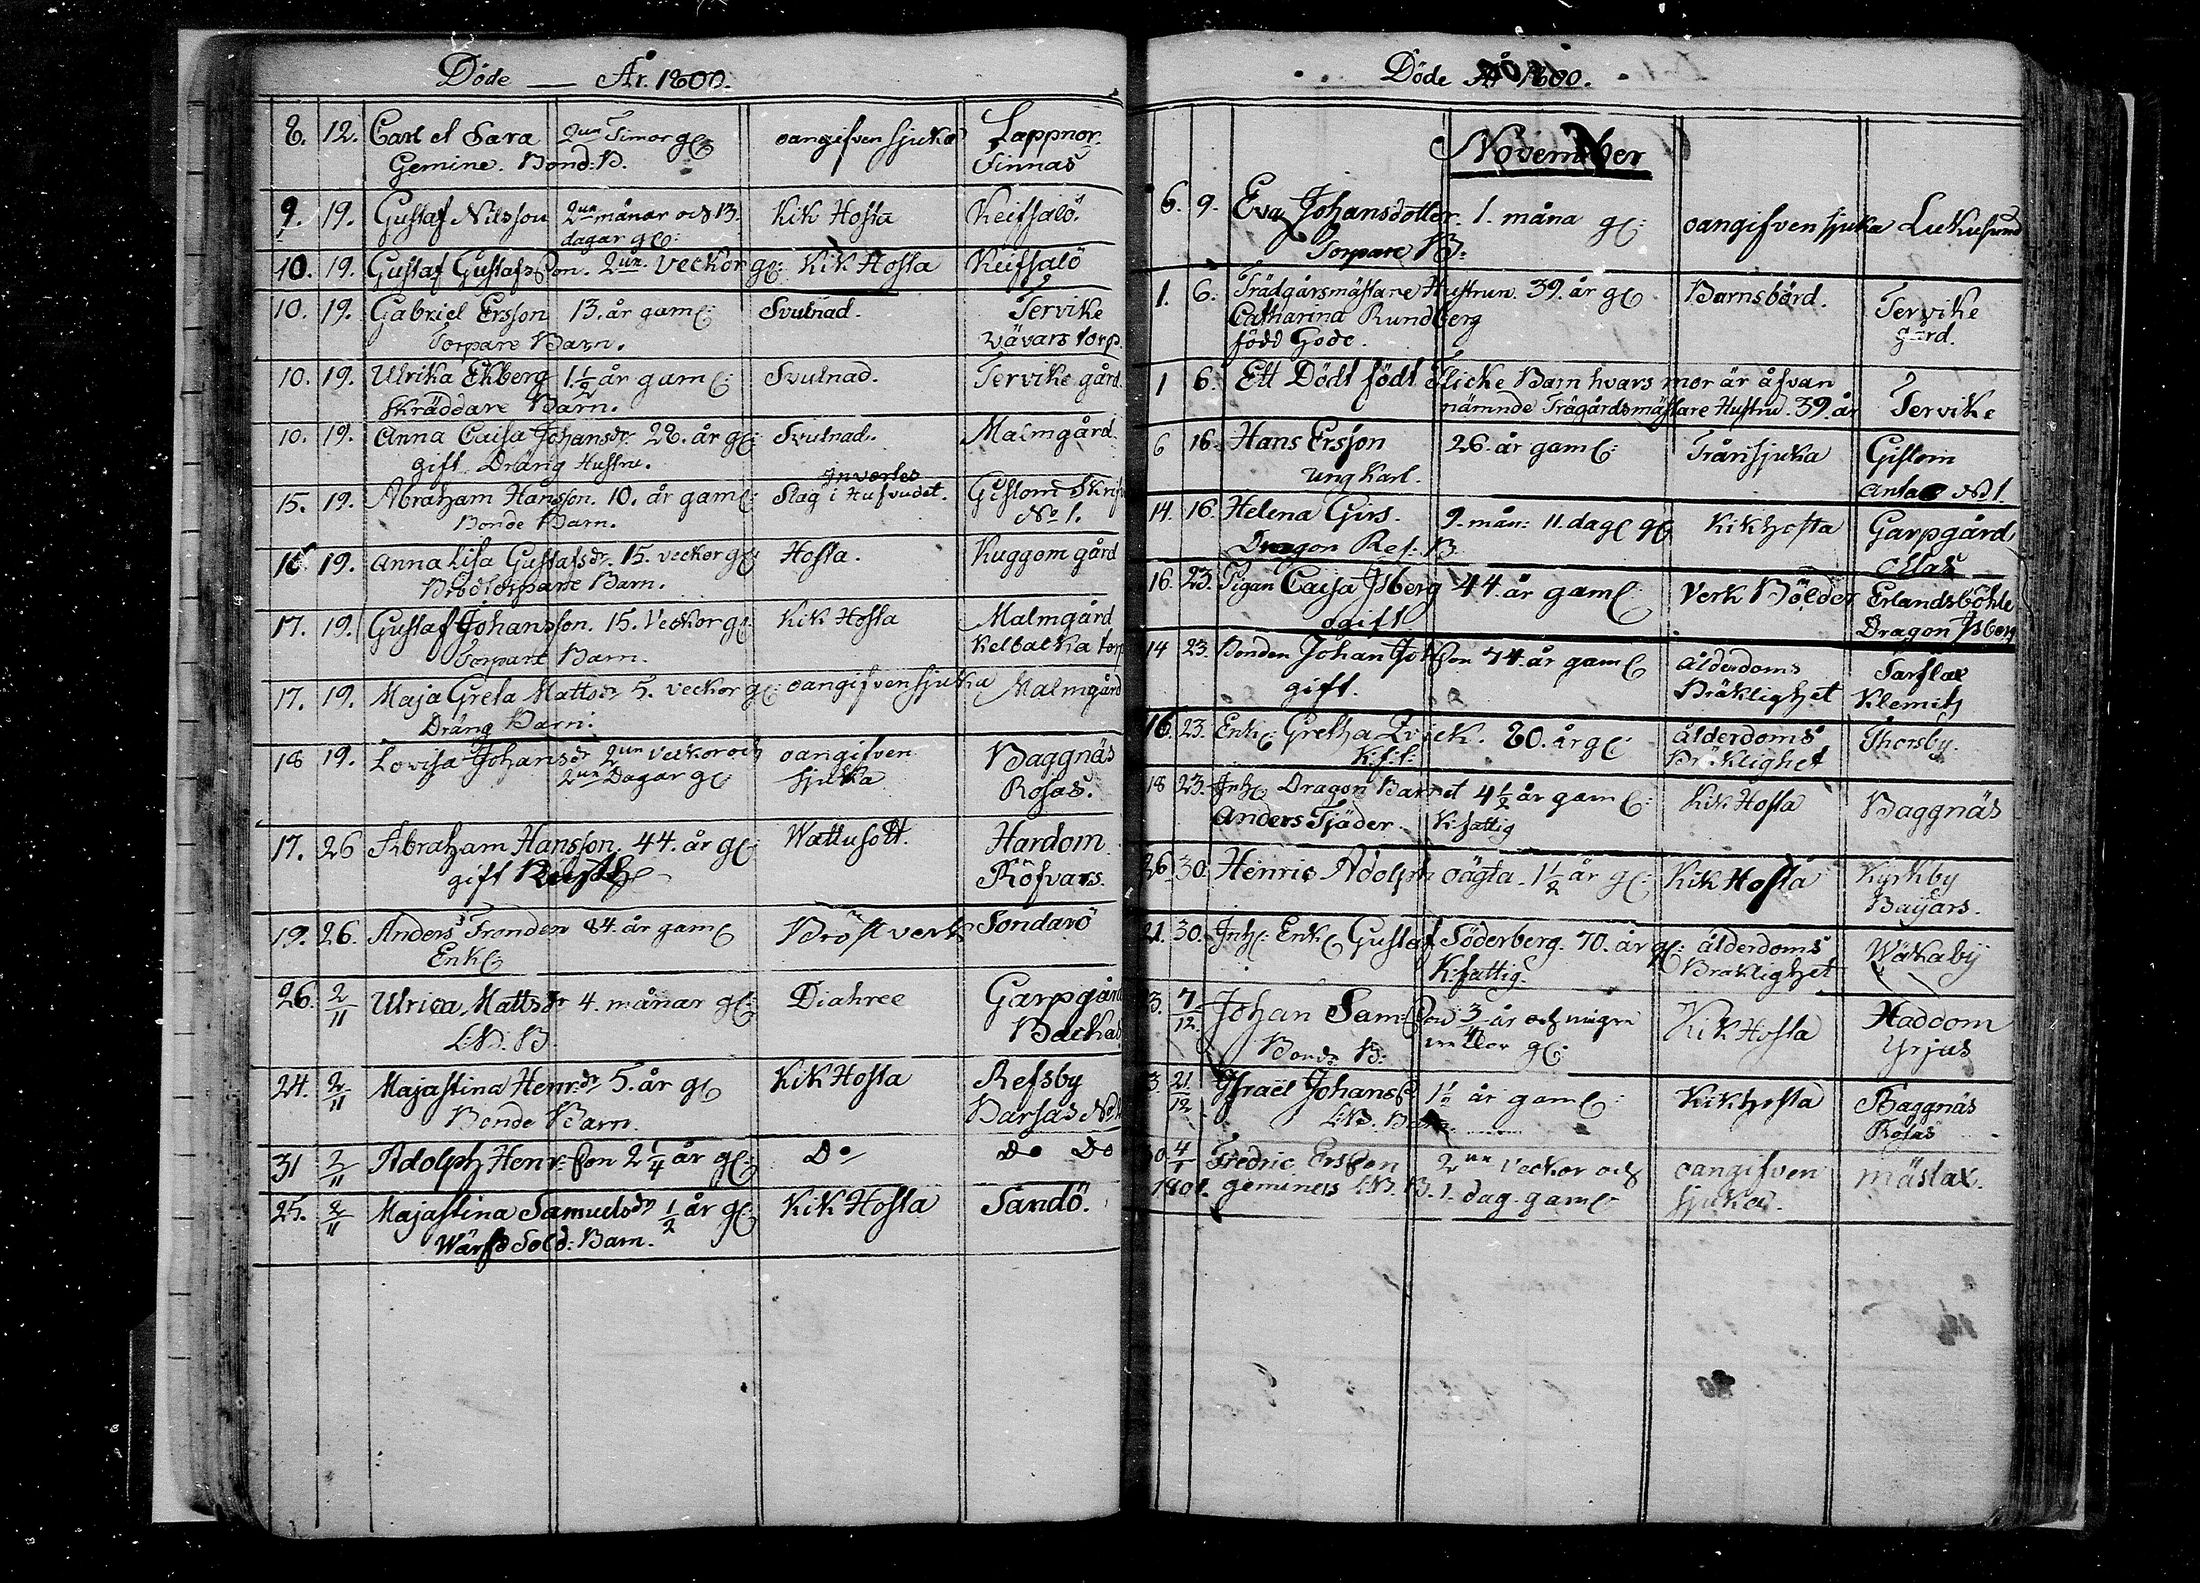 Döde — År. 1800.
8. 12. Carl & Sara 2un Timar gl: oangifven sjuka Lappnor.
Gemine. Bond: B. Finnas
9. 19. Gustaf Nilsson 2un månar och 13. Kik Hosta Keitsalö
dagar gl:
10. 19. Gustaf Gustafsson. 2un. veckor gl: Kik Hosta Keitsalö
10. 19. Gabriel Ersson 13. år gaml: Svulnad. Tervike
Torpare Barn. Vävars torp.
10. 19. Ulrika Ekberg 1.½ år gaml: Svulnad. Tervike gård.
Skräddare Barn.
10. 19. Anna Caisa Johansdr. 28. år gl: Svulnad. Malmgård.
gift Dräng Hustru.
invertes
15. 19. Abraham Hansson. 10. år gaml: Slag i Hufvudet. Gislom
Bonde Barn. No 1.
16 19. Anna Lisa Gustafsdr. 15. veckor gl: Hosta. Kuggom gård
Barn.
17. 19. Gustaf Johansson. 15. Veckor gl: Kik Hosta Malmgård
Torpare Barn. Kelbacka torp
17. 19. Maja Greta Mattsdr 5. veckor gl: oangifven sjuka Malmgård
Dräng Barn.
18 19. Lovisa Johansdr 2un veckor och oangifven Baggnäs
2un Dagar gl: sjuka Rosas.
17. 26 Abraham Hansson. 44. år gl: Wattusott. Hardom
gift Röfvars.
19. 26. Anders Tronden 84. år gaml: Bröstverk Sondarö
Enkl:
26. 2/11 Ulrica Mattsdr 4. månar gl: Diahree Garpgård
L:B. B. Backas
24. 2/11 Majastina Henr:dr 5. år gl: Kik Hosta Refsby
Bonde Barn. Barsas No
31 2/11 Adolph Henr:son 2 ¼ år gl: Do Do Do
25. 2/11 Majastina Samuelsdr ½ år gl: Kik Hosta Sandö.
Wärfd Sold: Barn.
Döde År 1800.
November
6. 9. Eva Johansdotter. 1. måna gl: oangifven sjuka Lukusund
Torpare B:
1. 6. Trädgårsmästare Hustrun. 39. år gl: Barnsbörd. Tervike
Catharina Rundberg gård.
född Gode.
1 6. Ett Dödt född Flicke Barn hvars mor är åfvan
nämnde Trägårdsmästare Hustru. 39. år Tervike
6 16. Hans Ersson 26. år gaml: Trånsjuka Gislom
ung Karl. Antas No 1.
14. 16. Helena Girs. 9. mån: 11. dagl gl: Kikhosta Garpgård
Dragon Ref: B
16. 23. Pigan Caisa Isberg 44. år gaml: Verk Bölder Erlandsböhle
ogift Dragon Isberg
14 23. Bonden Johan 74. år gaml: ålderdoms Sarflax
gift. Bräklighet Klemits
16. 23. Enk: Gretha Qvick. 80. år gl: ålderdoms Thorsby.
K:f:f: Bräklighet
18 23. Inh: Dragon Barnet 4 ½ år gaml: Kik Hosta Baggnäs
Anders Tjäder. K:fattig
26. 30. Henric Adolph oägta. 1 ½ år gl: Kik Hosta Kyrkby
Baijars.
21. 30. Inh: Enkl: Gustaf Söderberg. 70. år gl: ålderdoms Wäkaby
K:fattig. Bräklighet
3. 7/12. Johan Sam:son ¾ år och någre Kik Hosta Haddom
Bonde B: veckor gl: Yrjus
3. 21/12 Israël Johanss 1½ år gaml: Kikhosta Baggnäs
L:B. Barn Rosas
30. 4/1 Fredric Ersson 2un Veckor och oangifven mästax.
1801. geminers L:B. B. 1. dag. gaml: sjuka.